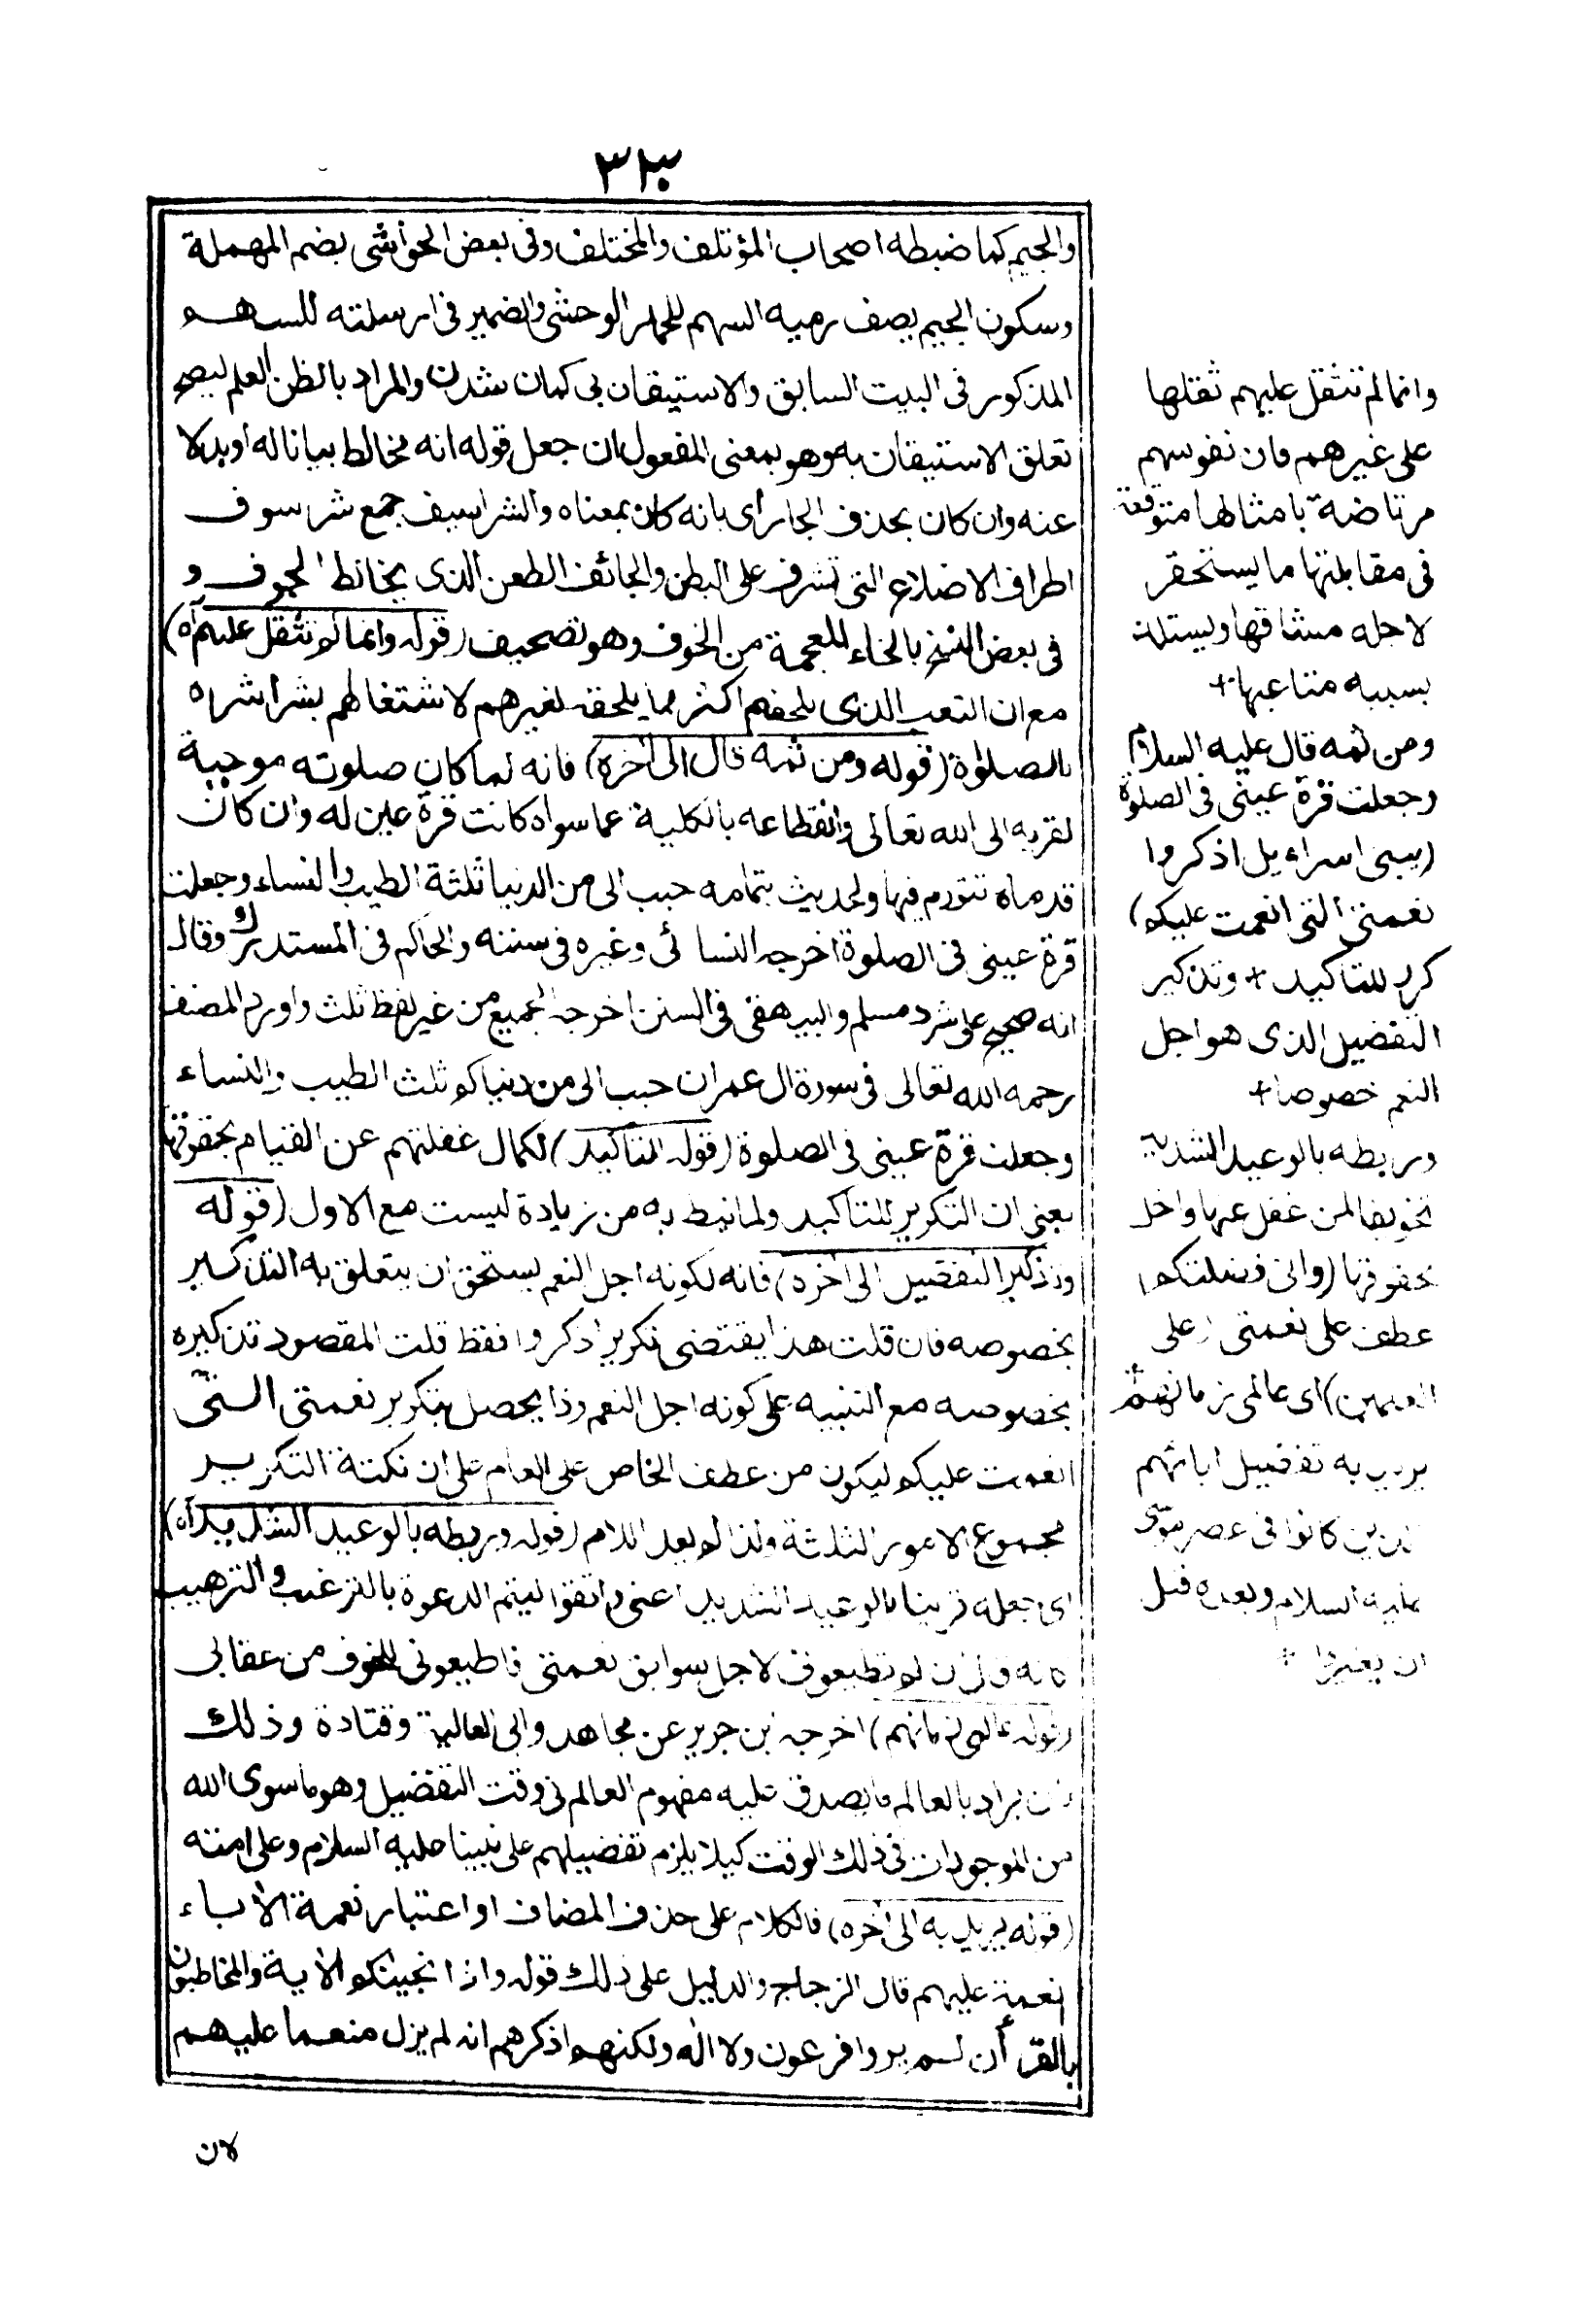 ٣٢٠
والجيم كما ضبطه اصحاب المؤتلف والمختلف وفى بعض الحواشى بضم المهملة
وسكون الجيم يصف رميه السهم للحمار الوحشى والضمير فى ارسلته للسهم
المذكور فى البيت السابق والاستيقان بى كمان شدن والمراد بالظن العلم ليصح
تعلق الاستيقان به وهو بمعنى المفعول ان جعل قوله انه مخالط بيانا له او بدلا
عنه وان كان بحذف الجار اى بانه كان بمعناه والشراسيف جمع شرسوف
اطراف الاضلاع التى تشرف على البطن والجائف الطعن الذى يخالط الجوف و
فى بعض النسخ بالخاء المعجمة من الخوف وهو تصحيف (قوله وانما لم تثقل عليهم آه)
مع ان التعب الذى يلحقهم اكثر مما يلحق لغيرهم لاشتغالهم بشراشره
بالصلوة (قوله ومن ثمه قال الى آخره) فانه لما كان صلوته موجبة
لقربه الى الله تعالى وانقطاعه بالكلية عما سواه كانت قرة عين له وان كان
قدماه تتورم فيها والحديث بتمامه حبب الى من الدنيا ثلثة الطيب والنساء وجعلت
قرة عينى فى الصلوة اخرجه النسائى وغيره فى سننه والحاكم فى المستدرك وقال
انه صحيح على شرط مسلم والبيهقى فى السنن اخرجه الجميع من غير لفظ ثلث واورد المصنف
رحمه الله تعالى فى سورة ال عمران حبب الى من دنياكم ثلث الطيب والنساء
وجعلت قرة عينى فى الصلوة (قوله للتاكيد) لكمال غفلتهم عن القيام بحقوقها
يعنى ان التكرير للتاكيد ولما نيط به من زيادة ليست مع الاول (قوله
وتذكير التفضيل الى آخره) فانه لكونه اجل النعم يستحق ان يتعلق به التذكير
بخصوصه فان قلت هذا يقتضى تكرير اذكروا فقط قلت المقصود تذكيره
بخصوصه مع التنبيه على كونه اجل النعم وذا يحصل بتكرير نعمتى التى
انعمت عليكم ليكون من عطف الخاص على العام على ان نكتة التكرير
مجموع الامور الثلثة ولذا لم يعد اللام (قوله وربطه بالوعيد الشديد آه)
اى جعله قرينا بالوعيد الشديد اعنى واتقوا ليتم الدعوة بالترغيب والترهيب
كانه قال ان لم تطيعونى لاجل سوابق نعمتى فاطيعونى للخوف من عقابى
(قوله عالمى زمانهم) اخرجه ابن جرير عن مجاهد وابى العالية وقتادة وذلك
بان يراد بالعالم ما يصدق عليه مفهوم العالم فى وقت التفضيل وهو ما سوى الله
من الموجودات فى ذلك الوقت كيلا يلزم تفضيلهم على نبينا عليه السلام وعلى امته
(قوله يريد به الى آخره) فالكلام على حذف المضاف او اعتبار نعمة الآباء
نعمة عليهم قال الزجاج والدليل على ذلك قوله واذ انجيناكم الآية والمخاطبون
بالقرآن لم يروا فرعون ولا اله ولكنهم اذكرهم انه لم يزل منعما عليهم
لان
وانما لم تثقل عليهم ثقلها
على غيرهم فان نفوسهم
مرتاضة بامثالها متوقعة
فى مقابلتها ما يستحقر
لاجله مشاقها ويستلذ
بسببه متاعبها+
ومن ثمه قال عليه السلام
وجعلت قرة عينى فى الصلوة
(يبنى اسراءيل اذكروا
نعمتى التى انعمت عليكم)
كرر للتاكيد+ وتذكير
التفضيل الذى هو اجل
النعم خصوصا+
وربطه بالوعيد الشديد
تخويفا لمن غفل عنها واخل
بحقوقها (وانى فضلتكم)
عطف على نعمتى (على
العلمين) اى عالمى زمانهم+
يريد به تفضيل ابائهم
الذين كانوا فى عصر موسى
عليه السلام وبعده قبل
ان يغيروا +